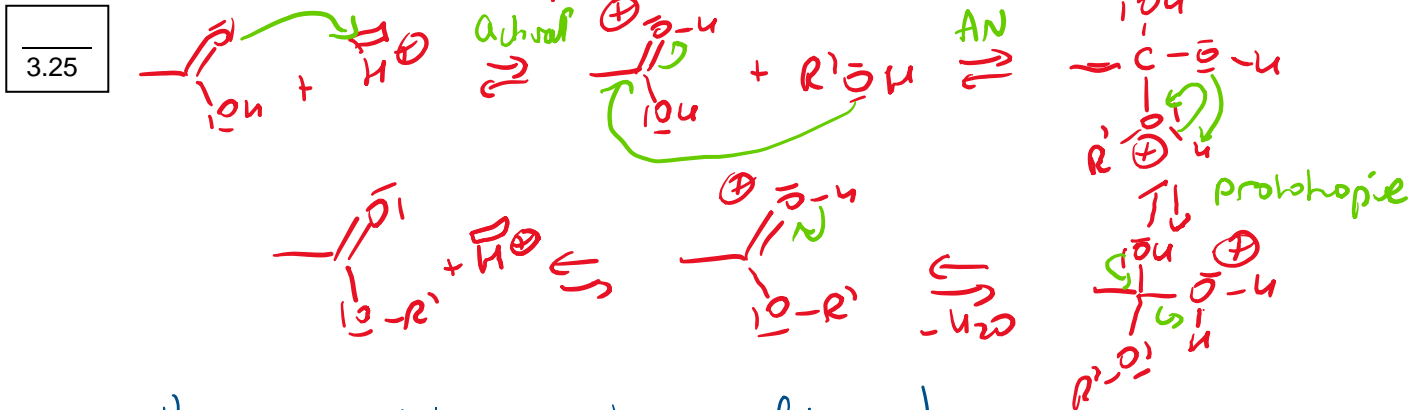 3.25
OH + H ⊕ activat ⊕ O-H + R'OH AN OH
OH C - O - H
R' O ⊕ H
prototropie
O + H ⊕ ⊕ O-H OH ⊕
O-R' O-R' -H2O O-H
H
R'-O